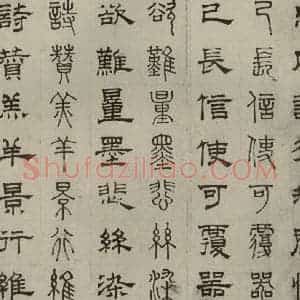 己長信使可覆器
己長信使可覆器
欲難量墨悲絲染
欲難量墨悲絲染
詩贊羔羊景行維
詩贊羔羊景行維
Shufaziliao.COM